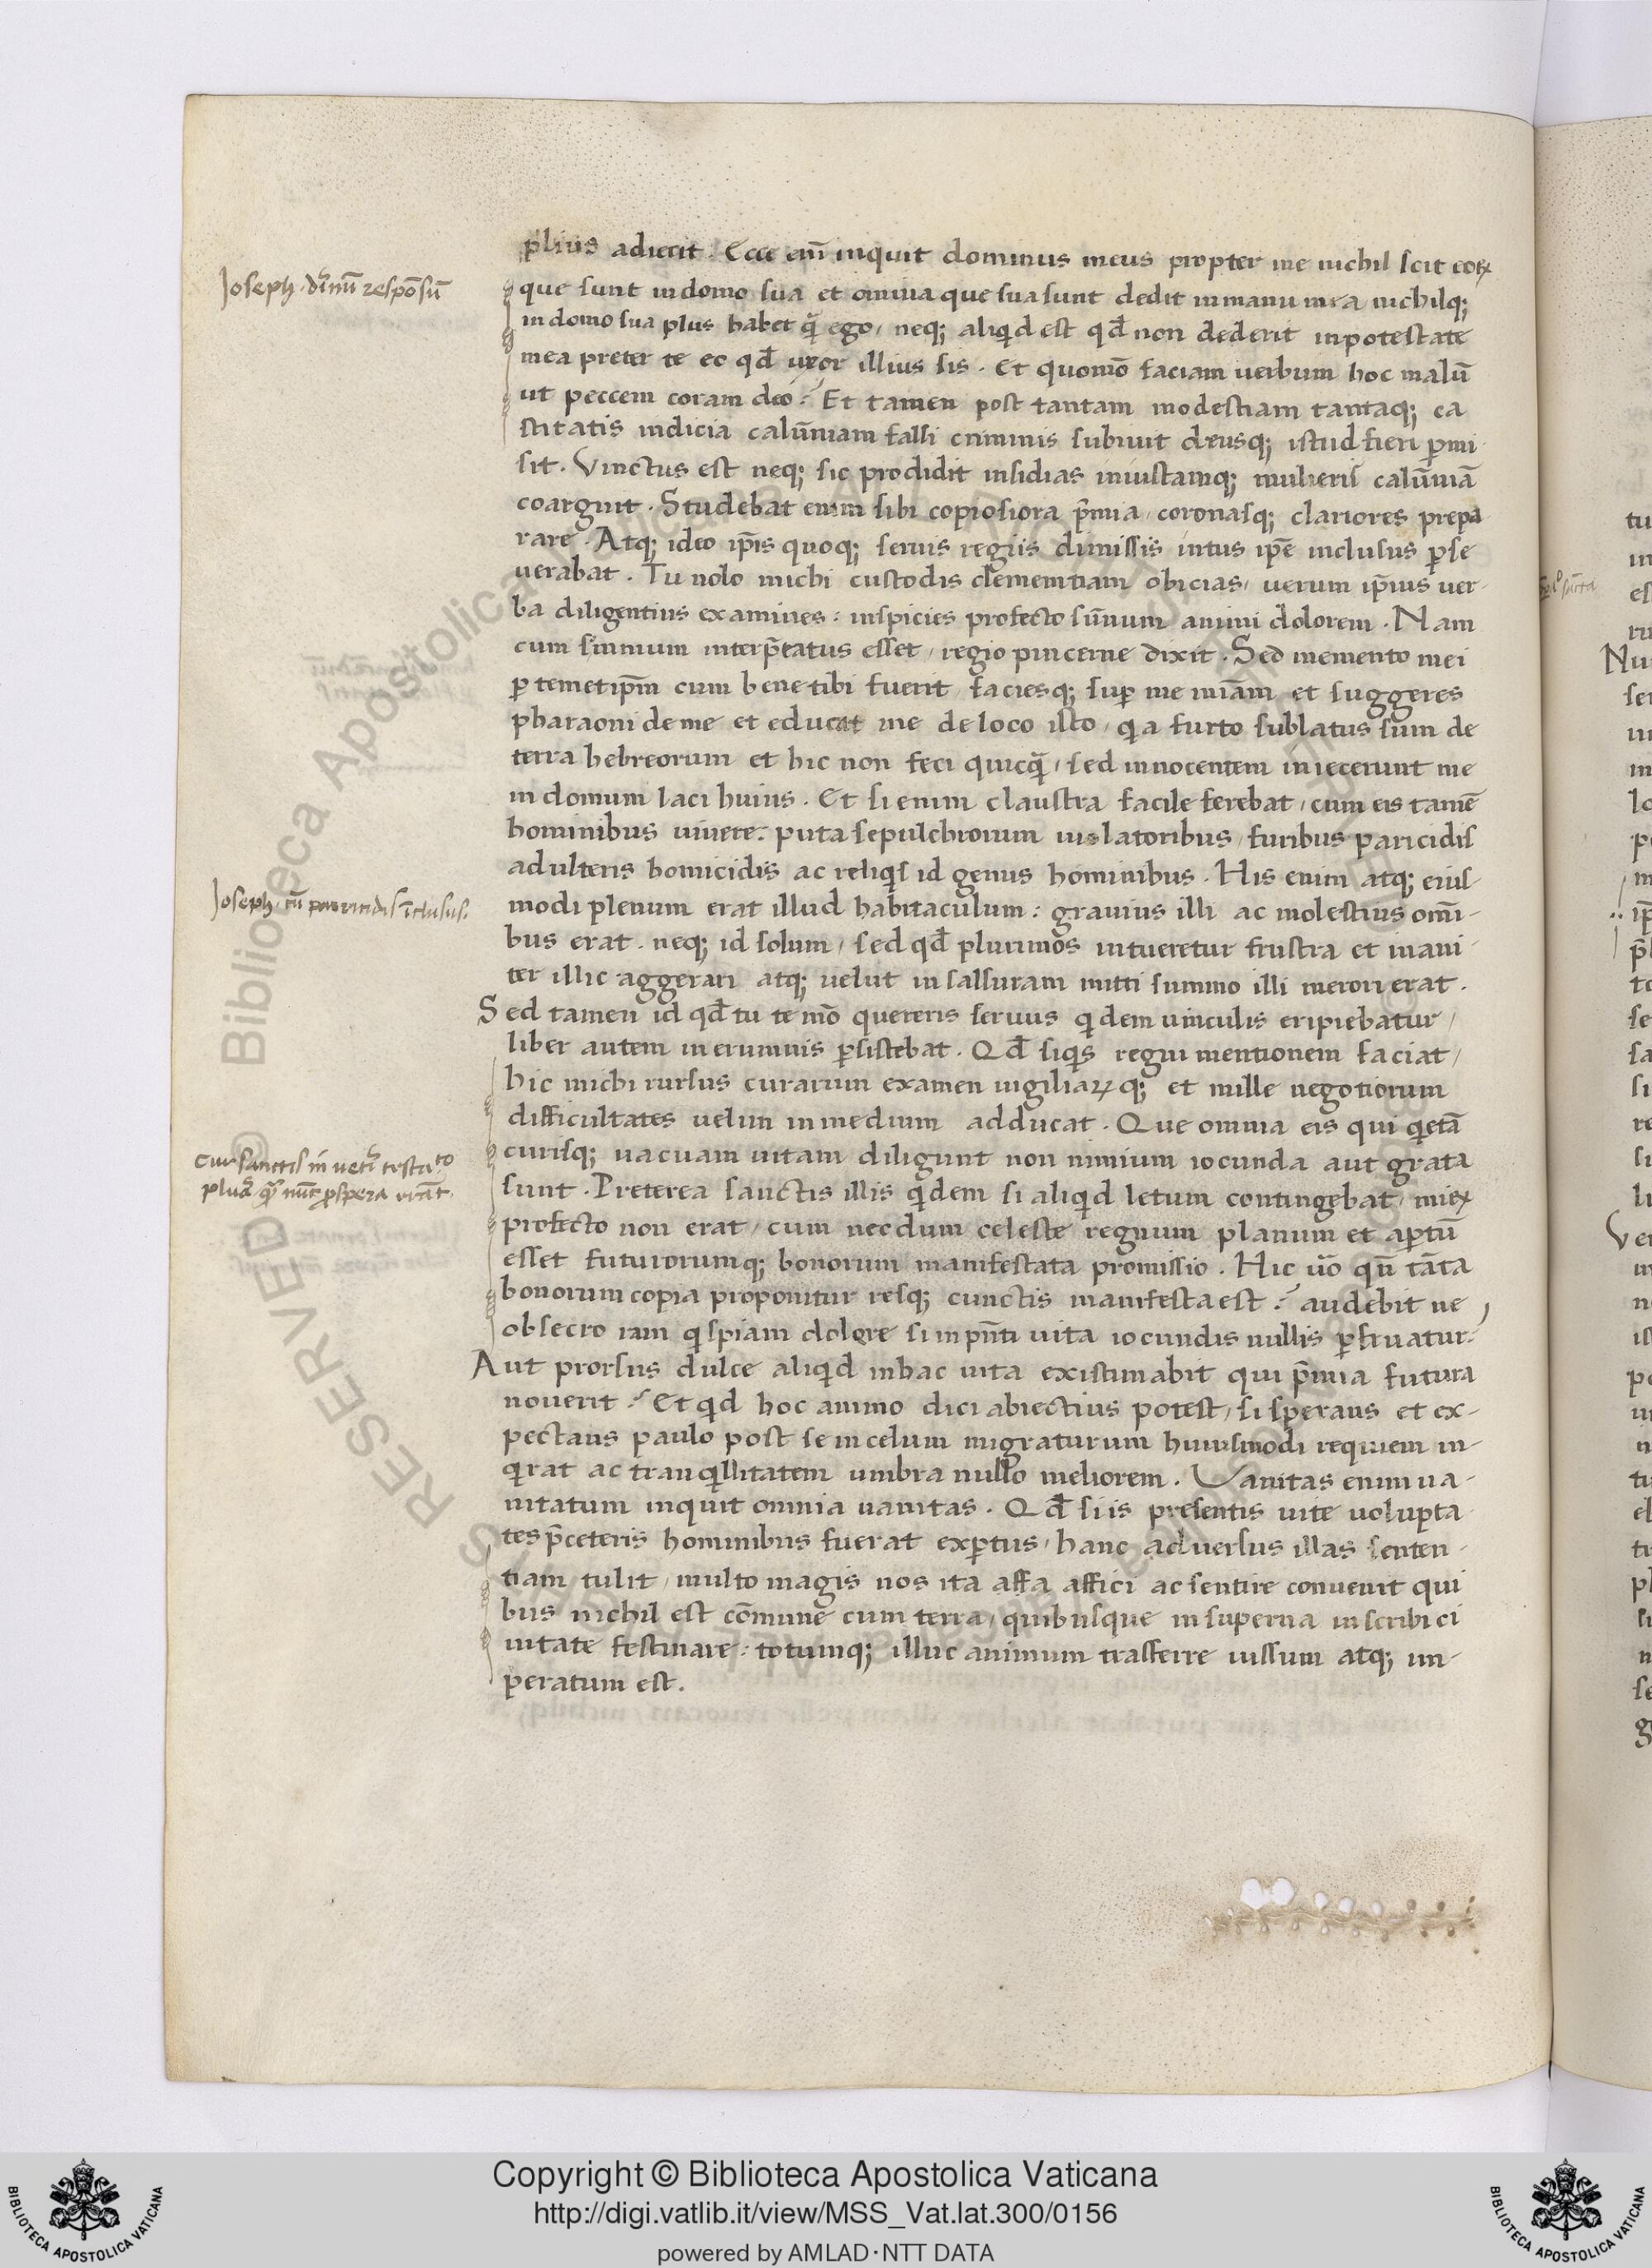 plius adiecit. Ecce eni̅ inquit dominus meus propter me nichil scit eoꝝ
Joseph. di̅nu̅ respo̅su̅
que sunt in domo sua et omnia que sua sunt dedit in manu mea nichilq;
in domo sua plus habet qua̅ ego, neq; aliqd est qd̅ non dederit in potestate
mea preter te eo qd̅ uxor illius sis. Et quomo̅ faciam uerbum hoc malu̅
ut peccem coram deo? Et tamen post tantam modestiam tantaq; ca
stitatis indicia calu̅niam falsi criminis subiuit deusq; istud fieri ꝑmi-
sit. Vinctus est neq; sic prodidit insidias iniustamq; mulieris calu̅nia̅
coarguit. Studebat enim sibi copiosiora p̅mia, coronasq; clariores prepa
rare. Atq; ideo ip̅is quoq; seruis regiis dimissis intus ip̅e inclusus ꝑse
uerabat. Tu nolo michi custodis clementiam obicias, uerum ip̅ius uer-
ba diligentius examines: inspicies profecto su̅mum animi dolorem. Nam
cum sinnium interp̅tatus esset, regio pincerne dixit. Sed memento mei
ꝑ temetip̅m cum bene tibi fuerit, faciesq; suꝑ me mi̅am et suggeres
pharaoni de me et educat me de loco isto, qa furto sublatus sum de
terra hebreorum et hic non feci quicqua̅, sed innocentem iniecerunt me
in domum laci huius. Et si enim claustra facile ferebat, cum eis tame̅
hominibus uiuere: puta sepulchrorum uiolatoribus, furibus paricidis
adulteris homicidis ac reliqis id genus hominibus. His enim atq; eius-
Joseph. cu̅ parricidis i̅clusus.
modi plenum erat illud habitaculum: grauius illi ac molestius omi̅-
bus erat. neq; id solum, sed qd̅ plurimos intueretur frustra et inani-
ter illic aggerari atq; uelut in salsuram mitti summo illi merori erat.
Sed tamen id qd̅ tu te mo̅ quereris seruus qdem uinculis eripiebatur,
liber autem in erumnis ꝑsistebat. Qd̅ siqis regni mentionem faciat,
hic michi rursus curarum examen uigiliaꝝq; et mille negotiorum
difficultates uelim in medium adducat. Que omnia eis qui qieta̅
Cur sanctis in uet̅i testa̅to
plura̅ qua̅ nu̅c ꝓspera era̅t.
curisq; uacuam uitam diligunt non nimium iocunda aut grata
sunt. Preterea sanctis illis qdem si aliqd letum contingebat, miꝝ
profecto non erat, cum necdum celeste regnum planum et aꝑtu̅
esset futurorumq; bonorum manifestata promissio. Hic uo̅ qn̅ ta̅ta
bonorum copia proponitur resq; cunctis manifesta est? audebit ne
obsecro iam qspiam dolere si in pn̅ti uita iocundis nullis ꝑfruatur?
Aut prorsus dulce aliqd in hac uita existimabit qui p̅mia futura
nouerit? Et qd hoc animo dici abiectius potest, si sꝑerans et ex-
pectans paulo post se in celum migraturum huiusmodi requiem in-
qirat ac tranqillitatem umbra nullo meliorem. Vanitas enim ua-
nitatum inquit omnia uanitas. Qd̅ si is presentis uite uolupta
tes p̅ceteris hominibus fuerat exꝑtus, hanc aduersus illas senten-
tiam tulit, multo magis nos ita affa affici ac sentire conuenit qui
bus nichil est co̅mune cum terra, quibusque in superna inscribi ci
uitate festinare: totumq; illuc animum trasferre iussum atq; im-
peratum est.
Copyright © Biblioteca Apostolica Vaticana
http://digi.vatlib.it/view/MSS_Vat.lat.300/0156
powered by AMLAD·NTT DATA
BIBLIOTECA APOSTOLICA VATICANA
BIBLIOTECA APOSTOLICA VATICANA